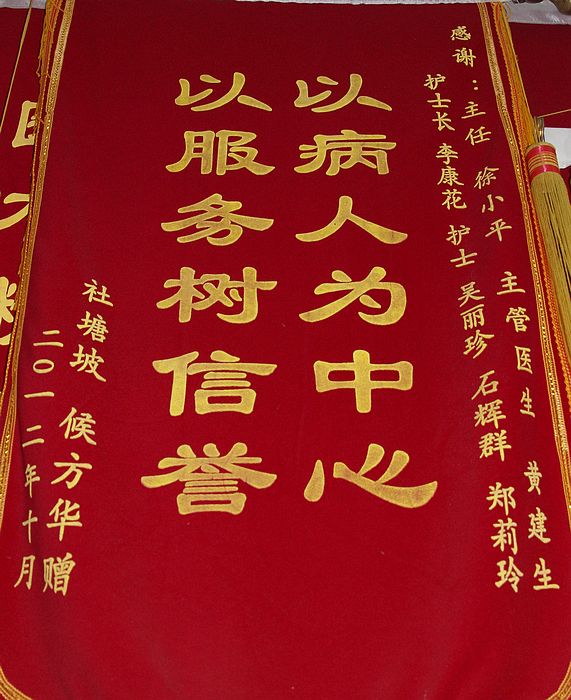 感谢：主任 徐小平 主管医生 黄建生
护士长 李康花 护士 吴丽珍 石辉群 郑莉玲
以病人为中心
以服务树信誉
社塘坡 候方华 赠
二〇一二年十月